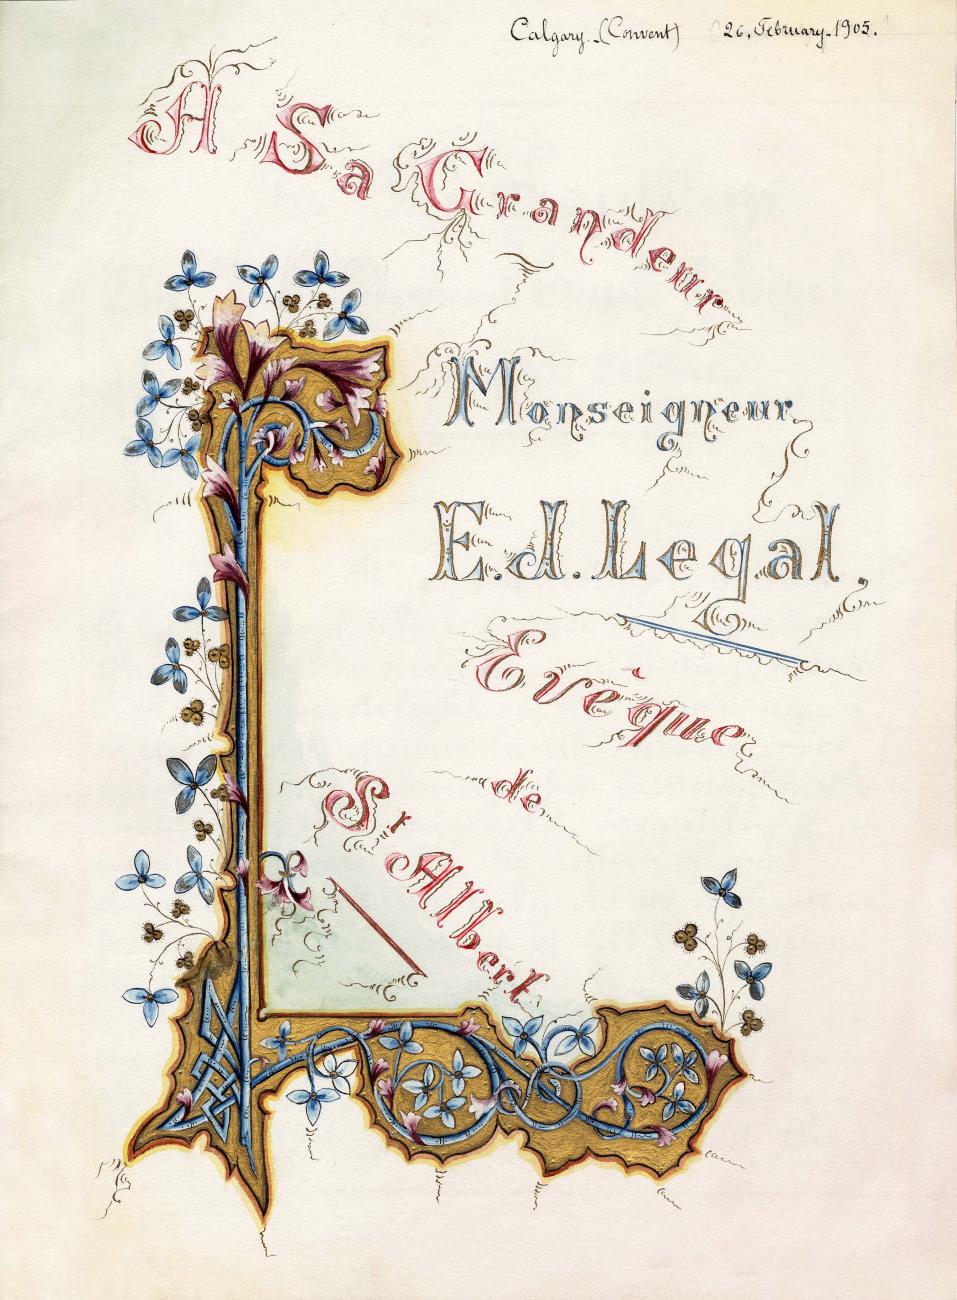 Calgary. (Convent) 26, February. 1905.
A Sa Grandeur
Monseigneur
E.d. Legal.
Evêque
de
St Albert